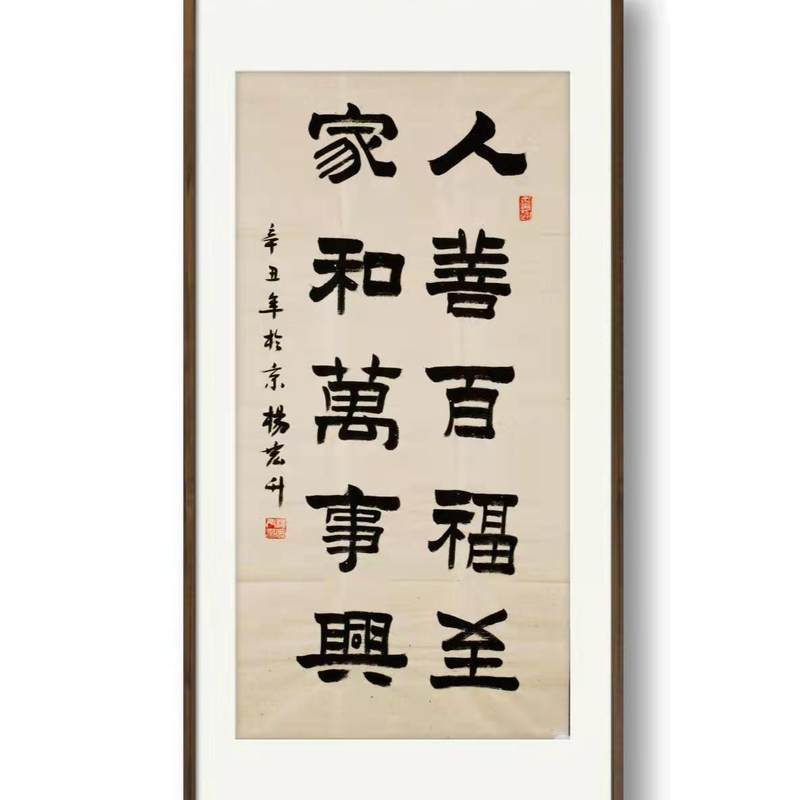 人善百福至
家和萬事興
辛丑年於京楊宏升